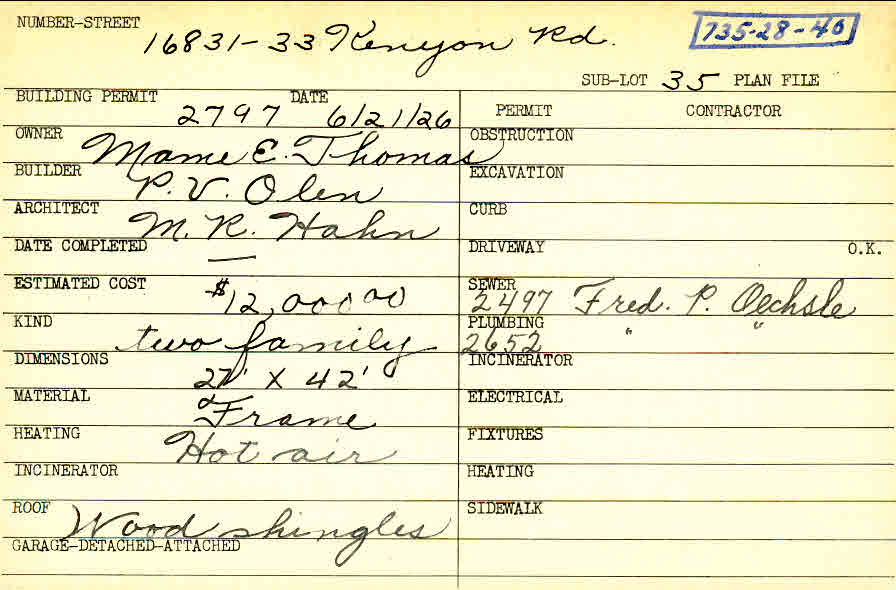 NUMBER-STREET
16831-33 Kenyon Rd.
735-28-40
SUB-LOT 35 PLAN FILE
BUILDING PERMIT 2797 DATE 6/21/26
PERMIT CONTRACTOR
OWNER Mame E. Thomas
OBSTRUCTION
BUILDER P. V. Olen
EXCAVATION
ARCHITECT M. R. Hahn
CURB
DATE COMPLETED —
DRIVEWAY O.K.
ESTIMATED COST $12,000 00
SEWER 2497 Fred. P. Oechsle
KIND two family
PLUMBING 2652 " "
DIMENSIONS 27' X 42'
INCINERATOR
MATERIAL Frame
ELECTRICAL
HEATING Hot air
FIXTURES
INCINERATOR
HEATING
ROOF Wood shingles
SIDEWALK
GARAGE-DETACHED-ATTACHED